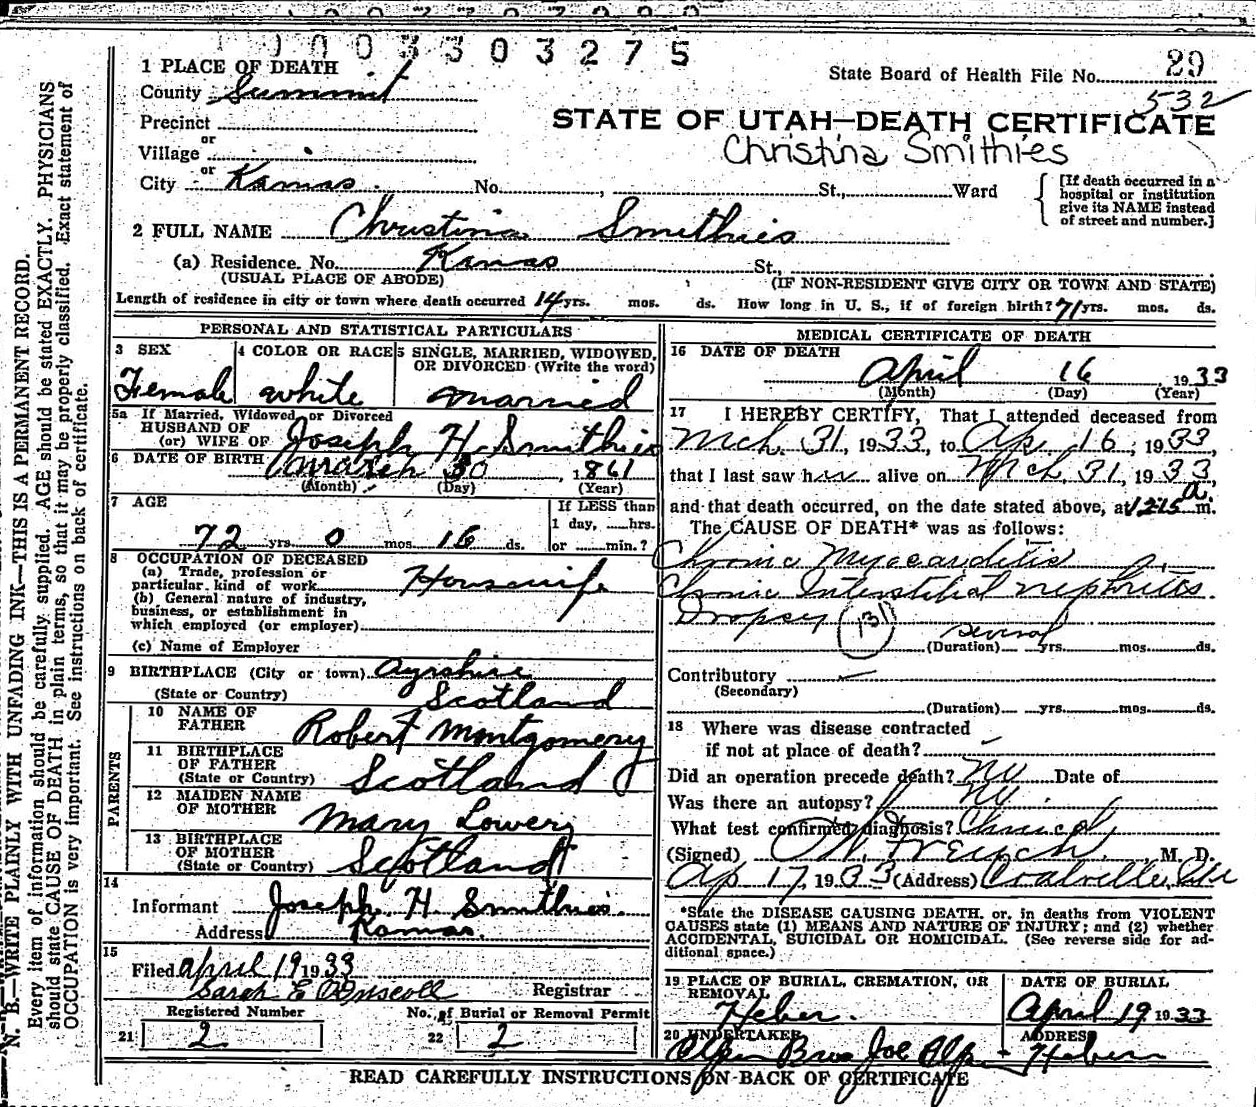 0003303275
1 PLACE OF DEATH
State Board of Health File No. 29
County Summit
532
STATE OF UTAH—DEATH CERTIFICATE
Precinct
Christina Smithies
or
Village
or
City Kamas No. , St., Ward
[If death occurred in a hospital or institution give its NAME instead of street and number.]
2 FULL NAME Christina Smithies
(a) Residence. No. Kamas St.,
(USUAL PLACE OF ABODE) (IF NON-RESIDENT GIVE CITY OR TOWN AND STATE)
Length of residence in city or town where death occurred 14 yrs. mos. ds. How long in U. S., if of foreign birth? 71 yrs. mos. ds.
PERSONAL AND STATISTICAL PARTICULARS
3 SEX 4 COLOR OR RACE 5 SINGLE, MARRIED, WIDOWED,
OR DIVORCED (Write the word)
Female white married
5a If Married, Widowed or Divorced
HUSBAND OF
(or) WIFE OF Joseph H. Smithies
6 DATE OF BIRTH March 30, 1861
(Month) (Day) (Year)
7 AGE If LESS than
1 day, hrs.
72 yrs. 0 mos. 16 ds. or min.?
8 OCCUPATION OF DECEASED
(a) Trade, profession or
particular kind of work Housewife
(b) General nature of industry,
business, or establishment in
which employed (or employer)
(c) Name of Employer
9 BIRTHPLACE (City or town) Ayrshire
(State or Country) Scotland
PARENTS
10 NAME OF
FATHER Robert Montgomery
11 BIRTHPLACE
OF FATHER
(State or Country) Scotland
12 MAIDEN NAME
OF MOTHER Mary Lowery
13 BIRTHPLACE
OF MOTHER
(State or Country) Scotland
14
Informant Joseph H. Smithies.
Address Kamas.
15
Filed April 19 1933
Sarah E O'Driscoll Registrar
Registered Number No. of Burial or Removal Permit
21 2 22 2
MEDICAL CERTIFICATE OF DEATH
16 DATE OF DEATH
April 16 1933
(Month) (Day) (Year)
17 I HEREBY CERTIFY, That I attended deceased from
Mch. 31, 1933, to Ap. 16, 1933,
that I last saw her alive on Mch 31, 1933,
and that death occurred, on the date stated above, at 1215 a. m.
The CAUSE OF DEATH* was as follows:
Chronic Myocarditis
Chronic Interstitial nephritis.
Dropsy 131
several
(Duration) yrs. mos. ds.
Contributory
(Secondary)
(Duration) yrs. mos. ds.
18 Where was disease contracted
if not at place of death?
Did an operation precede death? No Date of
Was there an autopsy? No.
What test confirmed diagnosis? Clinical
(Signed) French, M. D.
Ap 17, 1933 (Address) Coalville,
*State the DISEASE CAUSING DEATH. or. in deaths from VIOLENT
CAUSES state (1) MEANS AND NATURE OF INJURY; and (2) whether
ACCIDENTAL, SUICIDAL OR HOMICIDAL. (See reverse side for ad-
ditional space.)
19 PLACE OF BURIAL, CREMATION, OR
REMOVAL
Heber.
DATE OF BURIAL
April 19 1933
20 UNDERTAKER ADDRESS
Olpin Bros Joe Olpin Heber
READ CAREFULLY INSTRUCTIONS ON BACK OF CERTIFICATE
N. B.—WRITE PLAINLY WITH UNFADING INK—THIS IS A PERMANENT RECORD.
Every item of information should be carefully supplied. AGE should be stated EXACTLY. PHYSICIANS
should state CAUSE OF DEATH in plain terms, so that it may be properly classified. Exact statement of
OCCUPATION is very important. See instructions on back of certificate.